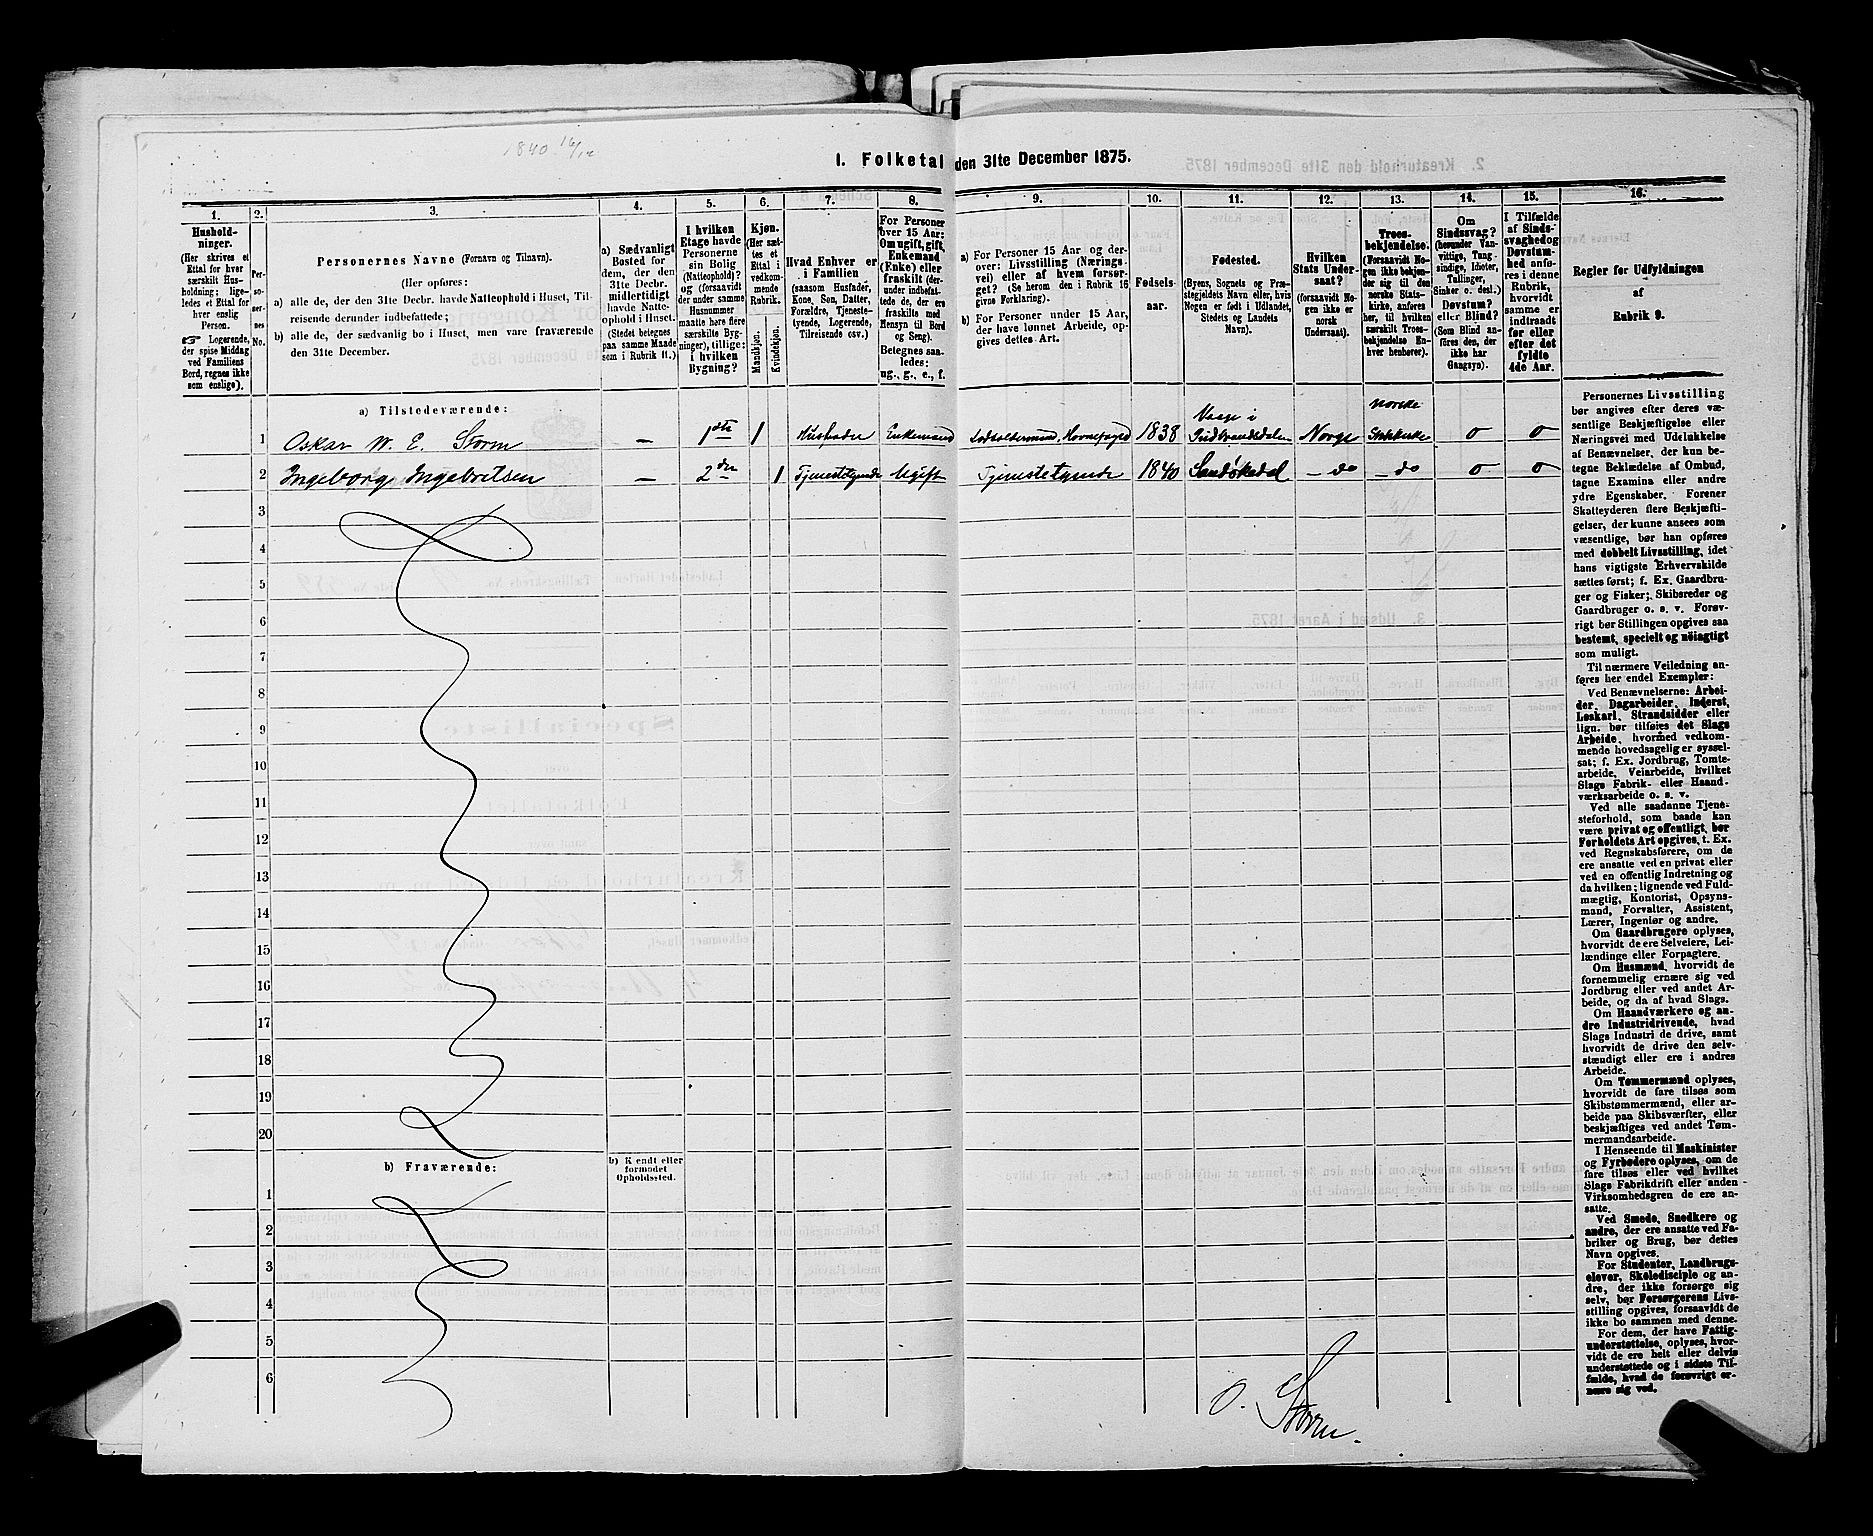 1840 16/12
1. Folketal den 31te December 1875.
1. 2. 3. 4. 5. 6. 7. 8. 9. 10. 11. 12. 13. 14. 15. 16.
Husholdninger.
(Her skrives et
Ettal for hver
særskilt Husholdning;
ligeledes et Ettal for
hver enslig
Person.
Logerende,
der spise Middag
ved Familiens
Bord, regnes ikke
som enslige).
Personernes No.
Personernes Navne (Fornavn og Tilnavn).
(Her opføres:
a) alle de, der den 31te Decbr. havde Natteophold i Huset, Tilreisende
derunder indbefattede;
b) alle de, der sædvanlig bo i Huset, men vare fraværende
den 31te December.
a) Sædvanligt
Bosted for
dem, der den
31te Decbr.
midlertidigt
havde Natteophold
i Huset.
(Stedet betegnes
paa samme Maade
som i Rubrik 11.)
I hvilken
Etage havde
Personerne
sin Bolig
(Natteophold)?
og (forsaavidt
der under samme
Husnummer
maatte høre flere
særskilte Bygninger),
tillige:
i hvilken
Bygning?
Kjøn.
(Her sættes
et
Ettal i
vedkommende
Rubrik.
Mandkjøn.
Kvindekjøn.
Hvad Enhver er
i Familien
(saasom Husfader,
Kone, Søn, Datter,
Forældre, Tjenestetyende,
Logerende,
Tilreisende osv.)
For Personer
over 15 Aar:
Om ugift, gift,
Enkemand
(Enke) eller
fraskilt (derunder
indbefattede
de, der ere
fraskilte med
Hensyn til Bord
og Seng).
Betegnes saaledes:
ug., g., e., f.
a) For Personer 15 Aar og derover:
Livsstilling (Næringsvei)
eller af hvem forsørget?
(Se herom den i Rubrik 16
givne Forklaring).
b) For Personer under 15 Aar,
der have lønnet Arbeide, opgives
dettes Art.
Fødselsaar.
Fødested.
(Byens, Sognets og Præstegjeldets
Navn eller, hvis
Nogen er født i Udlandet,
Stedets og Landets
Navn).
Hvilken
Stats Undersaat?
(forsaavidt Nogen
ikke er
norsk
Undersaat).
Troesbekjendelse.
(Forsaavidt Nogen
ikke bekjender
sig til den
norske Statskirke,
anføres
her, til hvilken
særskilt Troesbekjendelse
Enhver
henhører).
Om
Sindssvag?
(herunder Vanvittige,
Tungsindige,
Idioter,
Tullinger,
Sinker o. desl.)
Døvstum?
eller Blind?
(Som Blind anføres
den, der
ikke har
Gangsyn).
I Tilfælde
af Sindssvaghed
og
Døvstumhed
anføres
i denne
Rubrik,
hvorvidt
samme er
indtraadt
før eller
efter det
fyldte
4de Aar.
Regler for Udfyldningen
af
Rubrik 9.
a) Tilstedeværende:
1 Oskar W. E. Storm — 1ste 1 Husfader Enkemand 1838 Vaage i Gudbrandsdalen Norge norske Statskirke 0 0
2 Ingeborg Ingebretsen — 2den 1 Tjenestetyende Ugift Tjenestetyende 1840 Sandøkedal — do — do 0 0
3
4
5
6
7
8
9
10
11
12
13
14
15
16
17
18
19
20
b) Fraværende:
b) Kjendt eller
formodet
Opholdssted.
1
2
3
4
5
6
O. Storm.
Personernes Livsstilling
bør angives efter deres væsentlige
Beskjæftigelse eller
Næringsvei med Udelukkelse
af Benævnelser, der kun betegne
Beklædelse af Ombud,
tagne Examina eller andre
ydre Egenskaber. Forener
Skatteyderen flere Beskjæftigelser,
der kunne ansees som
væsentlige, bør han opføres
med dobbelt Livsstilling, idet
hans vigtigste Erhvervskilde
sættes først; f. Ex. Gaardbruger
og Fisker; Skibsreder og
Gaardbruger o. s. v. Forøvrigt
bør Stillingen opgives saa
bestemt, specielt og nøiagtigt
som muligt.
Til nærmere Veiledning anføres
her endel Exempler:
Ved Benævnelserne: Arbeider,
Dagarbeider, Inderst,
Løskarl, Strandsidder eller
lign. bør tilføies det Slags
Arbeide, hvormed vedkommende
hovedsagelig er sysselsat;
f. Ex. Jordbrug, Tomtearbeide,
Veiarbeide, hvilket
Slags Fabrik- eller Haandværksarbeide
o. s. v.
Ved alle saadanne Tjenesteforhold,
som baade kan
være privat og offentligt, bør
Forholdets Art opgives, t. Ex.
ved Regnskabsførere, om de
ere ansatte ved en privat eller
ved en offentlig Indretning og
da hvilken; lignende ved Fuldmægtig,
Kontorist, Opsynsmand,
Forvalter, Assistent,
Lærer, Ingeniør og andre.
Om Gaardbrugere oplyses,
hvorvidt de ere Selveiere, Leilændinge
eller Forpagtere.
Om Husmænd, hvorvidt de
fornemmelig ernære sig ved
Jordbrug eller ved andet Arbeide,
og da af hvad Slags.
Om Haandværkere og andre
Industridrivende, hvad
Slags Industri de drive, samt
hvorvidt de drive den selvstændigt
eller ere i andres
Arbeide.
Om Tømmermænd oplyses,
hvorvidt de fare tilsøs som
Skibstømmermænd, eller arbeide
paa Skibsværfter, eller
beskjæftiges ved andet Tømmermandsarbeide.
I Henseende til Maskinister
og Fyrbødere oplyses, om de
fare tilsøs eller ved hvilket
Slags Fabrikdrift eller anden
Virksomhedsgren de ere ansatte.
Ved Smede, Snedkere og
andre, der ere ansatte ved Fabriker
og Brug, bør dettes
Navn opgives.
For Studenter, Landbrugselever,
Skoledisciple og andre,
der ikke forsørge sig
selv, bør Forsørgerens Livsstilling
opgives, forsaavidt de
ikke bo sammen med denne.
For dem, der have Fattigunderstøttelse,
oplyses, hvorvidt
de ere helt eller delvis
understøttede og i sidste Tilfælde,
hvad de forøvrigt ernære
sig ved.